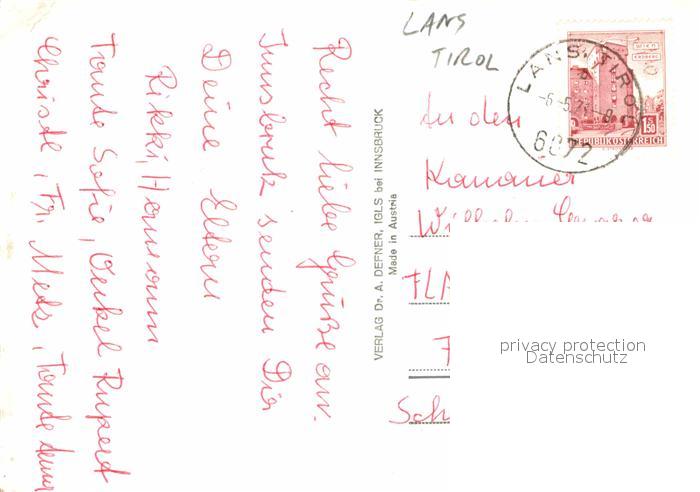 LANS
TIROL
LANS TIROL
6072
WIEN
ERDBERG
1.50
REPUBLIK ÖSTERREICH
Recht liebe Grüße aus
Innsbruck senden Dir
Deine Eltern
Rikki, Hermann
Tante Sofie, Onkel Rupert
Christl, Fr. Metz, Tante
VERLAG Dr. A. DEFNER, IGLS bei INNSBRUCK
Made in Austria
An den
Kanonier
FLA
7
Sch
privacy protection
Datenschutz